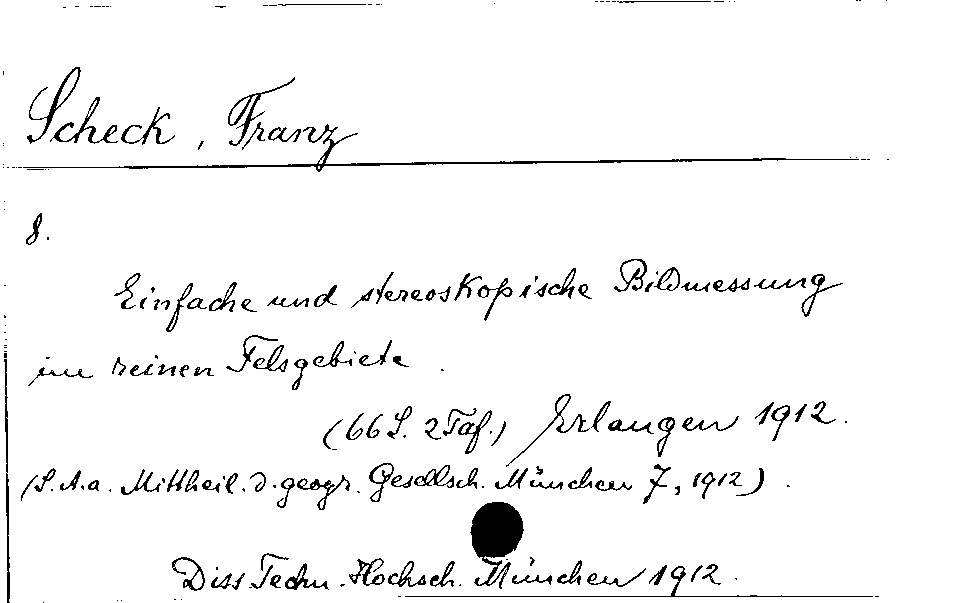 Scheck, Franz
8.
Einfache und stereoskopische Bildmessung
im reinen Felsgebiete.
(66 S. 2 Taf.) Erlangen 1912.
(S. A. a. Mittheil. d. geogr. Gesellsch. München 7, 1912).
Diss Techn. Hochsch. München 1912.